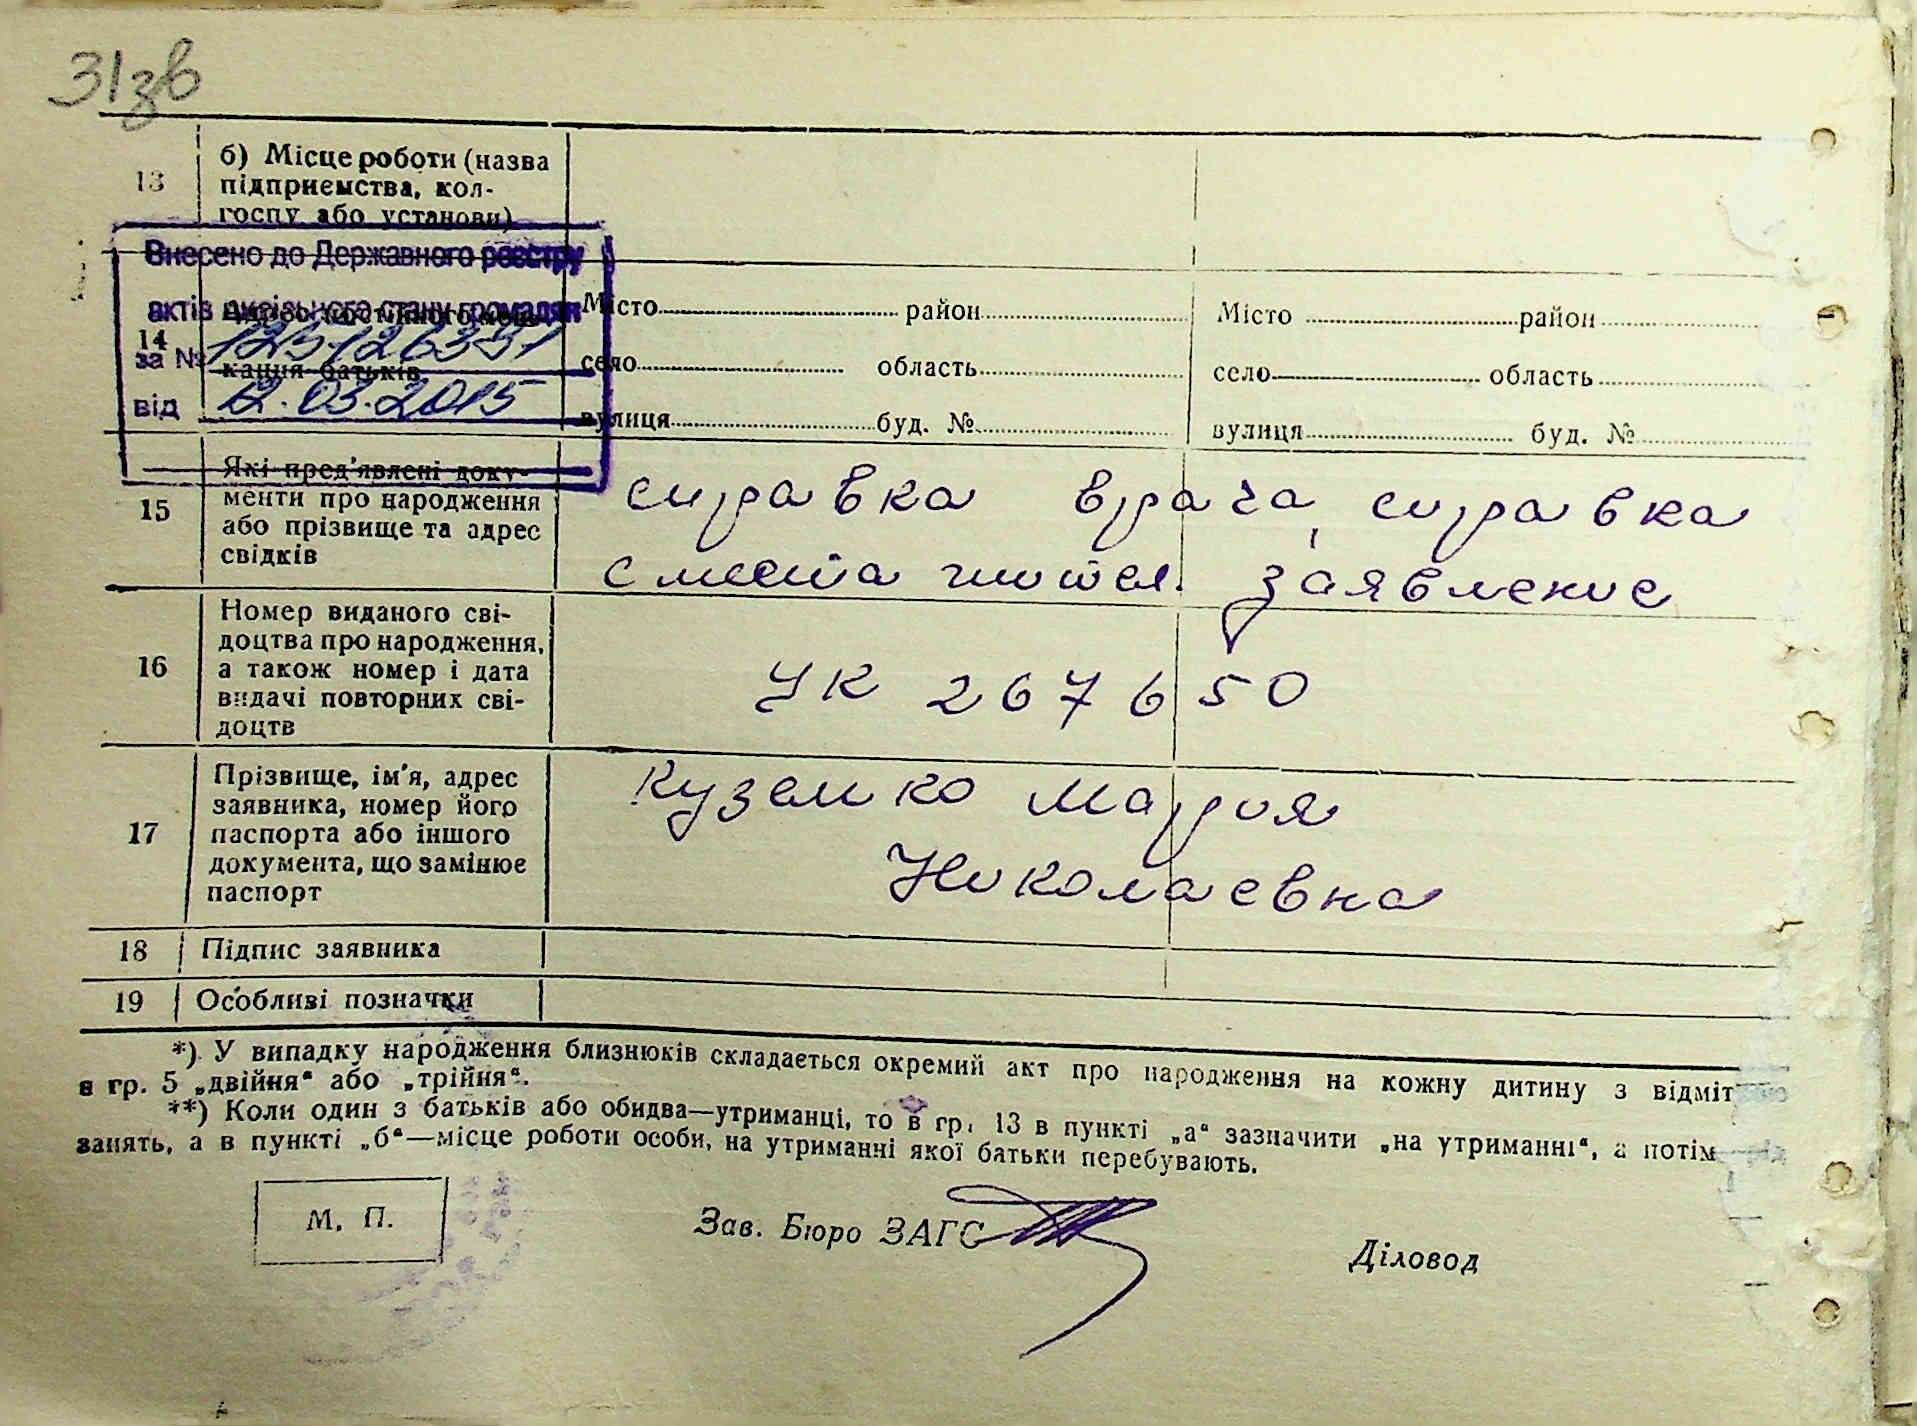 31зв
13
б) Місце роботи (назва
підприємства, кол-
госпу або установи)
Внесено до Державного реєстру
актів цивільного стану громадян
за №
від 12.03.2015
14
кання батьків
Місто район
село область
вулиця буд. №
Місто район
село область
вулиця буд. №
15
Які пред'явлені доку-
менти про народження
або прізвище та адрес
свідків
справка врача, справка
с места жител. заявление
16
Номер виданого сві-
доцтва про народження,
а також номер і дата
видачі повторних сві-
доцтв
УК 267650
17
Прізвище, ім'я, адрес
заявника, номер його
паспорта або іншого
документа, що замінює
паспорт
Куземко Мария
Николаевна
18 Підпис заявника
19 Особливі позначки
*) У випадку народження близнюків складається окремий акт про народження на кожну дитину з відміт
в гр. 5 „двійня“ або „трійня“.
**) Коли один з батьків або обидва—утриманці, то в гр. 13 в пункті „а“ зазначити „на утриманні“, а потім
занять, а в пункті „б“—місце роботи особи, на утриманні якої батьки перебувають.
М. П.
Зав. Бюро ЗАГС
Діловод